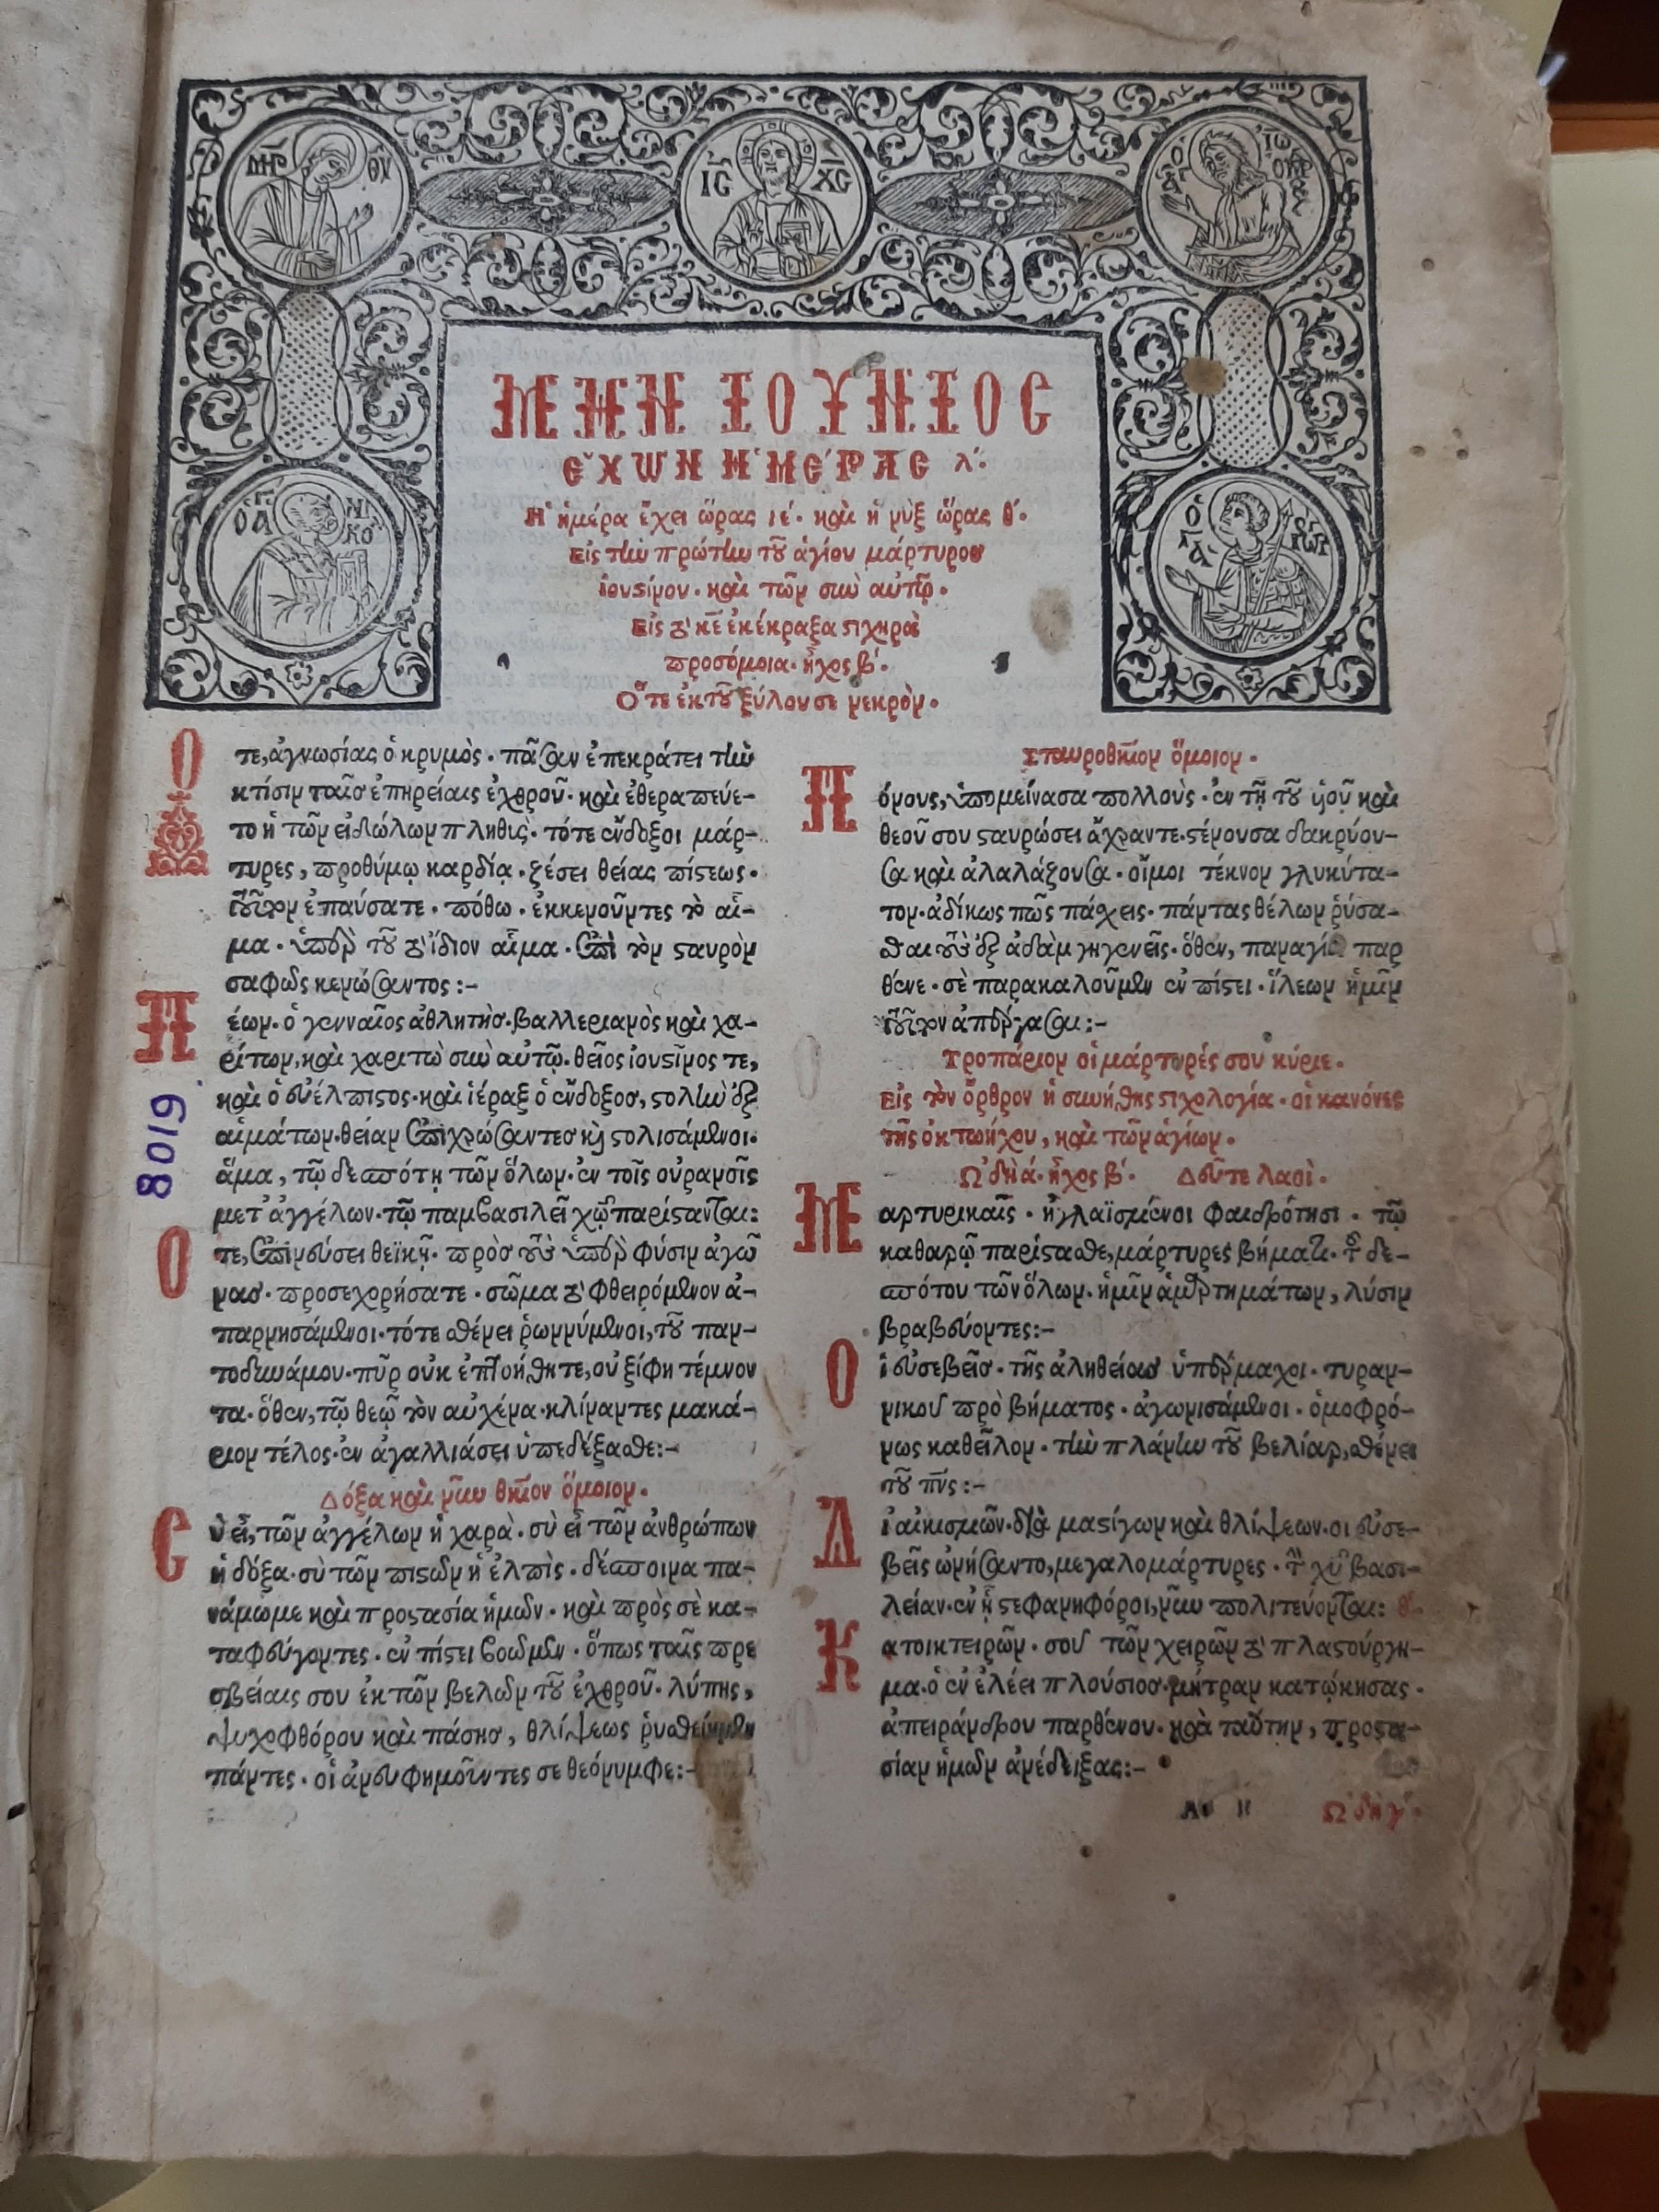 ΜΗΡ ΘΥ
ΙϹ ΧϹ
Ὁ ἅ ΙΩ Ὁ ΠΡ
Ὁ ἅ ΝΙΚΟ
Ὁ ἅ ΓΕΩΡ
ΜΗΝ ΙΟΥΝΙΟϹ
ἜΧΩΝ ἩΜΈΡΑϹ λ´.
Ἡ ἡμέρα ἔχει ὥρας ιέ. καὶ ἡ νὺξ ὥρας θ´.
Εἰς τὴν πρώτην τοῦ ἁγίου μάρτυρου
ἰουστίνου. καὶ τῶν σὺν αὐτῶ.
Εἰς τὸ κε ἐκέκραξα στιχηρὰ
προσόμοια. ἦχος β´.
Ὅτε ἐκ τοῦ ξύλου σε νεκρὸν.
Οτε, ἀγνωσίας ὁ κρυμὸς. πᾶσαν ἐπεκράτει τὴν
κτίσιν ταῖς ἐπηρείαις ἐχθροῦ. καὶ ἐθεραπεύε-
το ἡ τῶν εἰδώλων πληθὺς. τότε ἔνδοξοι μάρ-
τυρες, προθύμῳ καρδίᾳ. ζέσει θείας πίστεως.
τοῦτον ἐπαύσατε. πόθω. ἐκκενοῦντες τὸ αἷ-
μα. ὑπὲρ τοῦ τὸ ἴδιον αἷμα. ἐπὶ τὸν σταυρὸν
σαφῶς κενώσαντος:-
Νέων. ὁ γενναῖος ἀθλητὴς. βαλλεριανὸς καὶ χα-
ρίτων, καὶ χαριτὼ σὺν αὐτῷ. θεῖος ἰουστῖνος τε,
καὶ ὁ εὐέλπιστος. καὶ ἱέραξ ὁ ἔνδοξος, στολὴν ἐξ
αἱμάτων. θείαν ἐπιχρώσαντες κὶ στολισάμενοι.
ἅμα, τῷ δεσπότῃ τῶν ὅλων. ἐν τοῖς οὐρανοῖς
μετ' ἀγγέλων. τῷ παμβασιλεῖ χῷ παρίστανται:
Οτε, ἐπινεύσει θεϊκῇ. πρὸς τοὺς ὑπὲρ φύσιν ἀγῶ
νας. προσεχορήσατε. σῶμα τὸ φθειρόμενον ἀ-
παρνησάμενοι. τότε σθένει ῥωννύμενοι, τοῦ παν-
τοδυνάμου. πῦρ οὐκ ἐπτοήθητε, οὐ ξίφη τέμνον
τα. ὅθεν, τῷ θεῷ τὸν αὐχένα. κλίναντες μακά-
ριον τέλος. ἐν ἀγαλλιάσει ὑπεδέξασθε:-
Δόξα καὶ νῦν θκίον ὅμοιον.
Ϲὺ εἶ, τῶν ἀγγέλων ἡ χαρὰ. σὺ εἶ τῶν ἀνθρώπων
ἡ δόξα. σὺ τῶν πιστῶν ἡ ἐλπὶς. δέσποινα πα-
νάμωμε καὶ προστασία ἡμῶν. καὶ πρὸς σὲ κα-
ταφεύγοντες. ἐν πίστει βοῶμεν. ὅπως ταῖς πρε
σβείαις σου ἐκ τῶν βελῶν τοῦ ἐχθροῦ. λύπης,
ψυχοφθόρου καὶ πάσης, θλίψεως ῥυσθείημεν
πάντες. οἱ ἀνευφημοῦντες σε θεόνυμφε:-
Σταυροθκίον ὅμοιον.
Πόνους, ὑπομείνασα πολλοὺς. ἐν τῇ τοῦ ὑιοῦ καὶ
θεοῦ σου σταυρώσει ἄχραντε. στένουσα δακρύου-
σα καὶ ἀλαλάζουσα. οἴμοι τέκνον γλυκύτα-
τον. ἀδίκως πῶς πάσχεις. πάντας θέλων ῥύσα-
σθαι τοὺς ἐξ ἀδὰμ γηγενεῖς. ὅθεν, παναγία παρ
θένε. σὲ παρακαλοῦμεν ἐν πίστει. ἵλεων ἡμῖν
τοῦτον ἀπέργασαι:-
Τροπάριον οἱ μάρτυρές σου κύριε.
Εἰς τὸν ὄρθρον ἡ συνήθης στιχολογία. οἱ κανόνες
τῆς ὀκτωήχου, καὶ τῶν ἁγίων.
Ὠδὴ ά. ἦχος β´. Δεῦτε λαοὶ.
Μαρτυρικαῖς. ἠγλαϊσμένοι φαιδρότησι. τῷ
καθαρῷ παρίστασθε, μάρτυρες βήματι. τοῦ δε-
σπότου τῶν ὅλων. ἡμῖν ἁμαρτημάτων, λύσιν
βραβεύοντες:-
Οἱ εὐσεβεῖς. τῆς ἀληθείας ὑπέρμαχοι. τυραν-
νικοῦ πρὸ βήματος. ἀγωνισάμενοι. ὁμοφρό-
νως καθεῖλον. τὴν πλάνην τοῦ βελίαρ, σθένει
τοῦ πνς:-
Δι αἰκισμῶν. διὰ μαστίγων καὶ θλίψεων. οι εὐσε-
βεῖς ὠνήσαντο, μεγαλομάρτυρες. τὴν χυ βασι-
λείαν. ἐν ᾗ στεφανηφόροι, νῦν πολιτεύονται: θ.
Κατοικτειρῶν. σοῦ τῶν χειρῶν τὸ πλαστούργη-
μα. ὁ ἐν ἐλέει πλούσιος. μήτραν κατῴκησας.
ἀπειράνδρου παρθένου. καὶ ταύτην, προστα-
σίαν ἡμῶν ἀνέδειξας:-
Ὠδὴ γ´.
8019